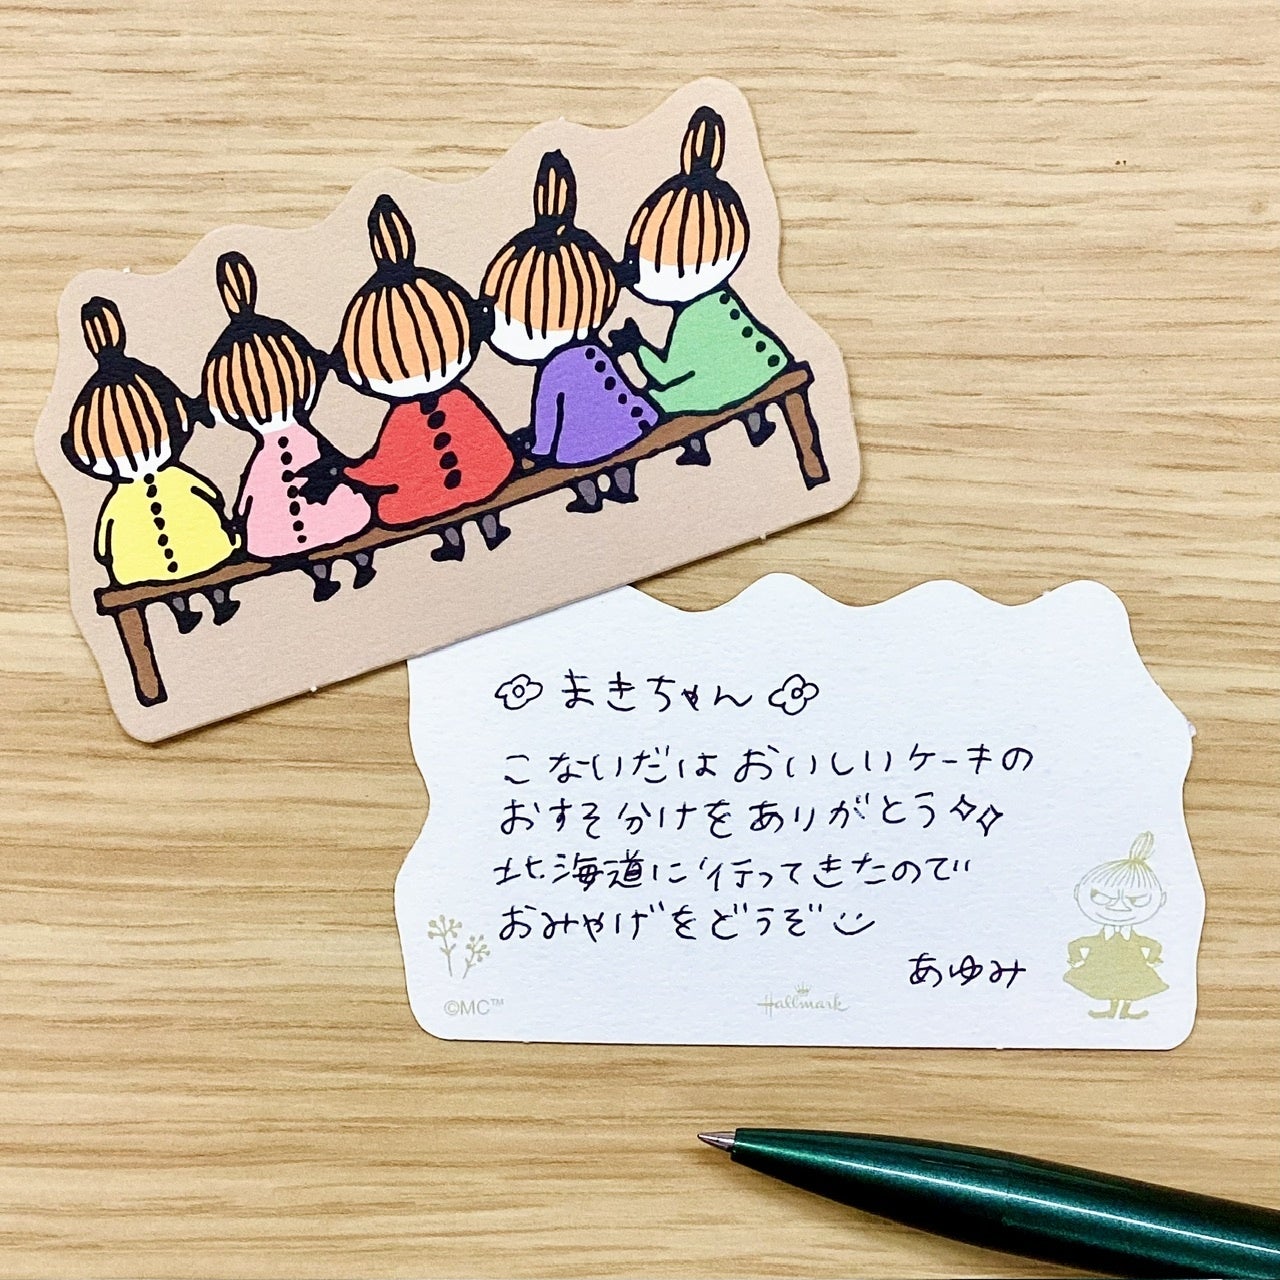 まきちゃん
こないだは おいしいケーキの
おすそ分けをありがとう
北海道に行ってきたので
おみやげをどうぞ
あゆみ
©MC™
Hallmark